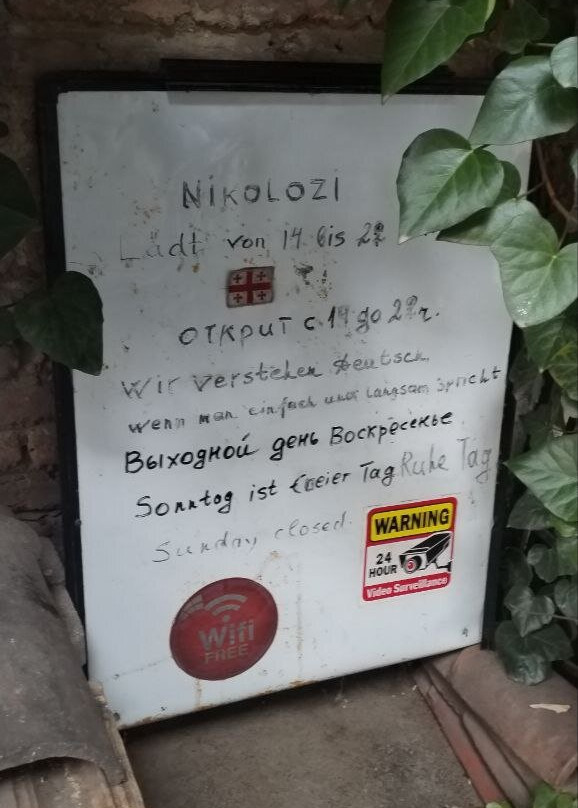 NIKOLOZI
Lädt von 14 bis
открит с 14 до
Wir verstehen Deutsch,
wenn man einfach und langsam spricht
Выходной день Воскресенье
Sonntag ist freier Tag Ruhe Tag
Sunday closed.
WARNING
24
HOUR
Video Surveillance
Wifi
FREE